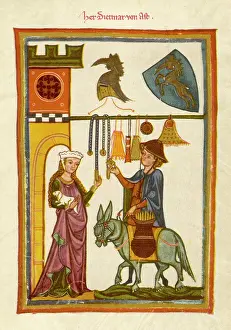 Her Dietmar von Aſt.